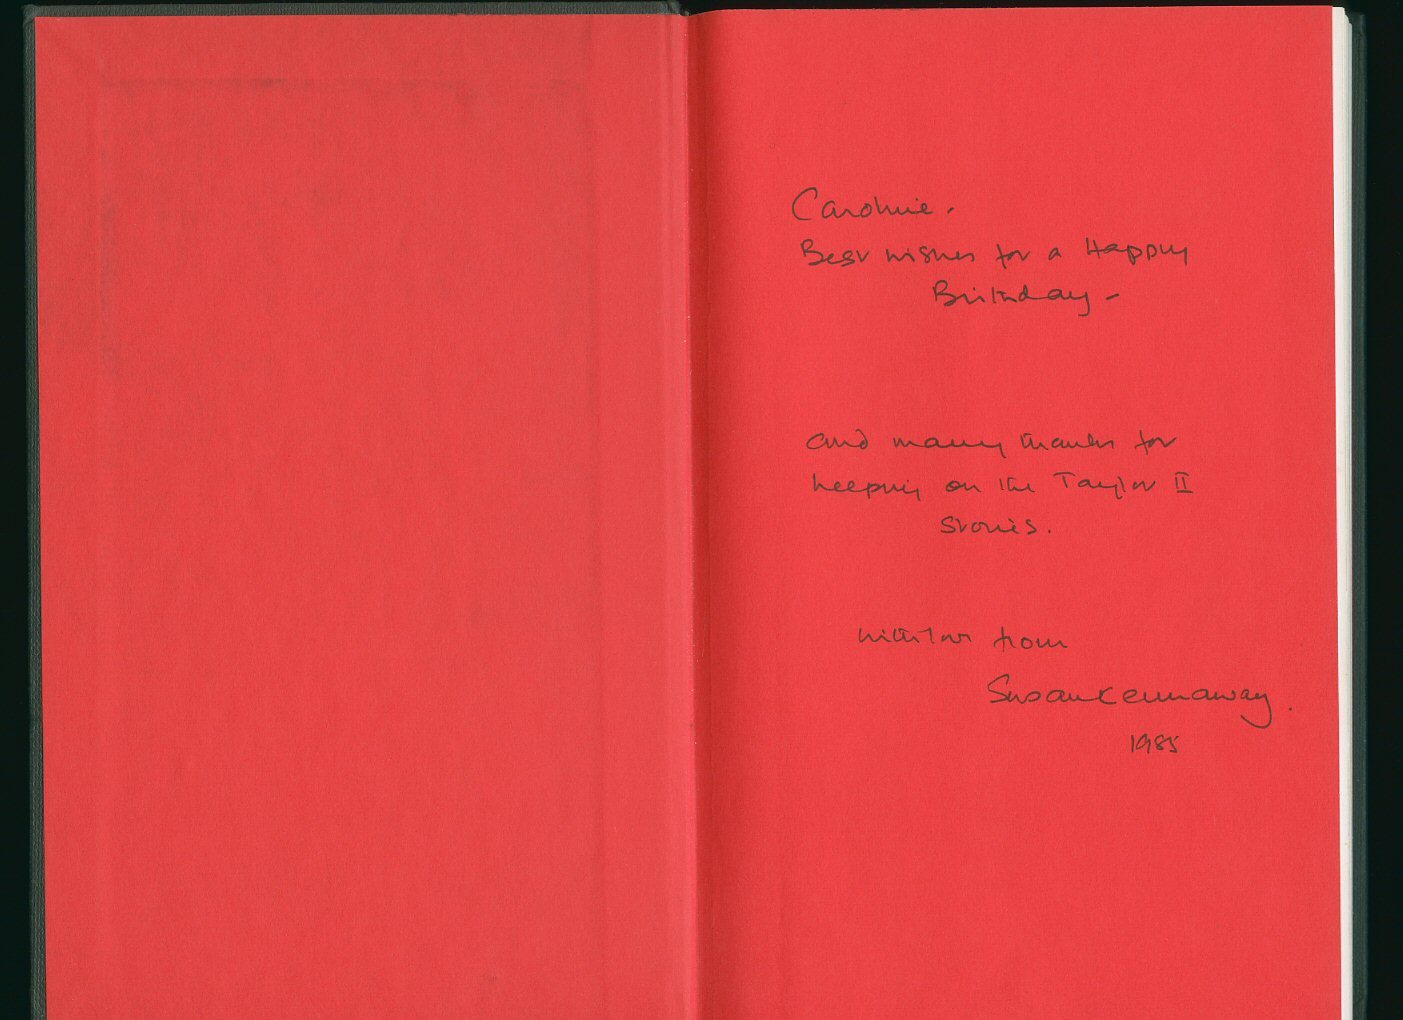 Caroline.
Best wishes for a Happy
Birthday -
and many thanks for
keeping on the Taylor II
Stories.
with love from
Susan Kennaway.
1985